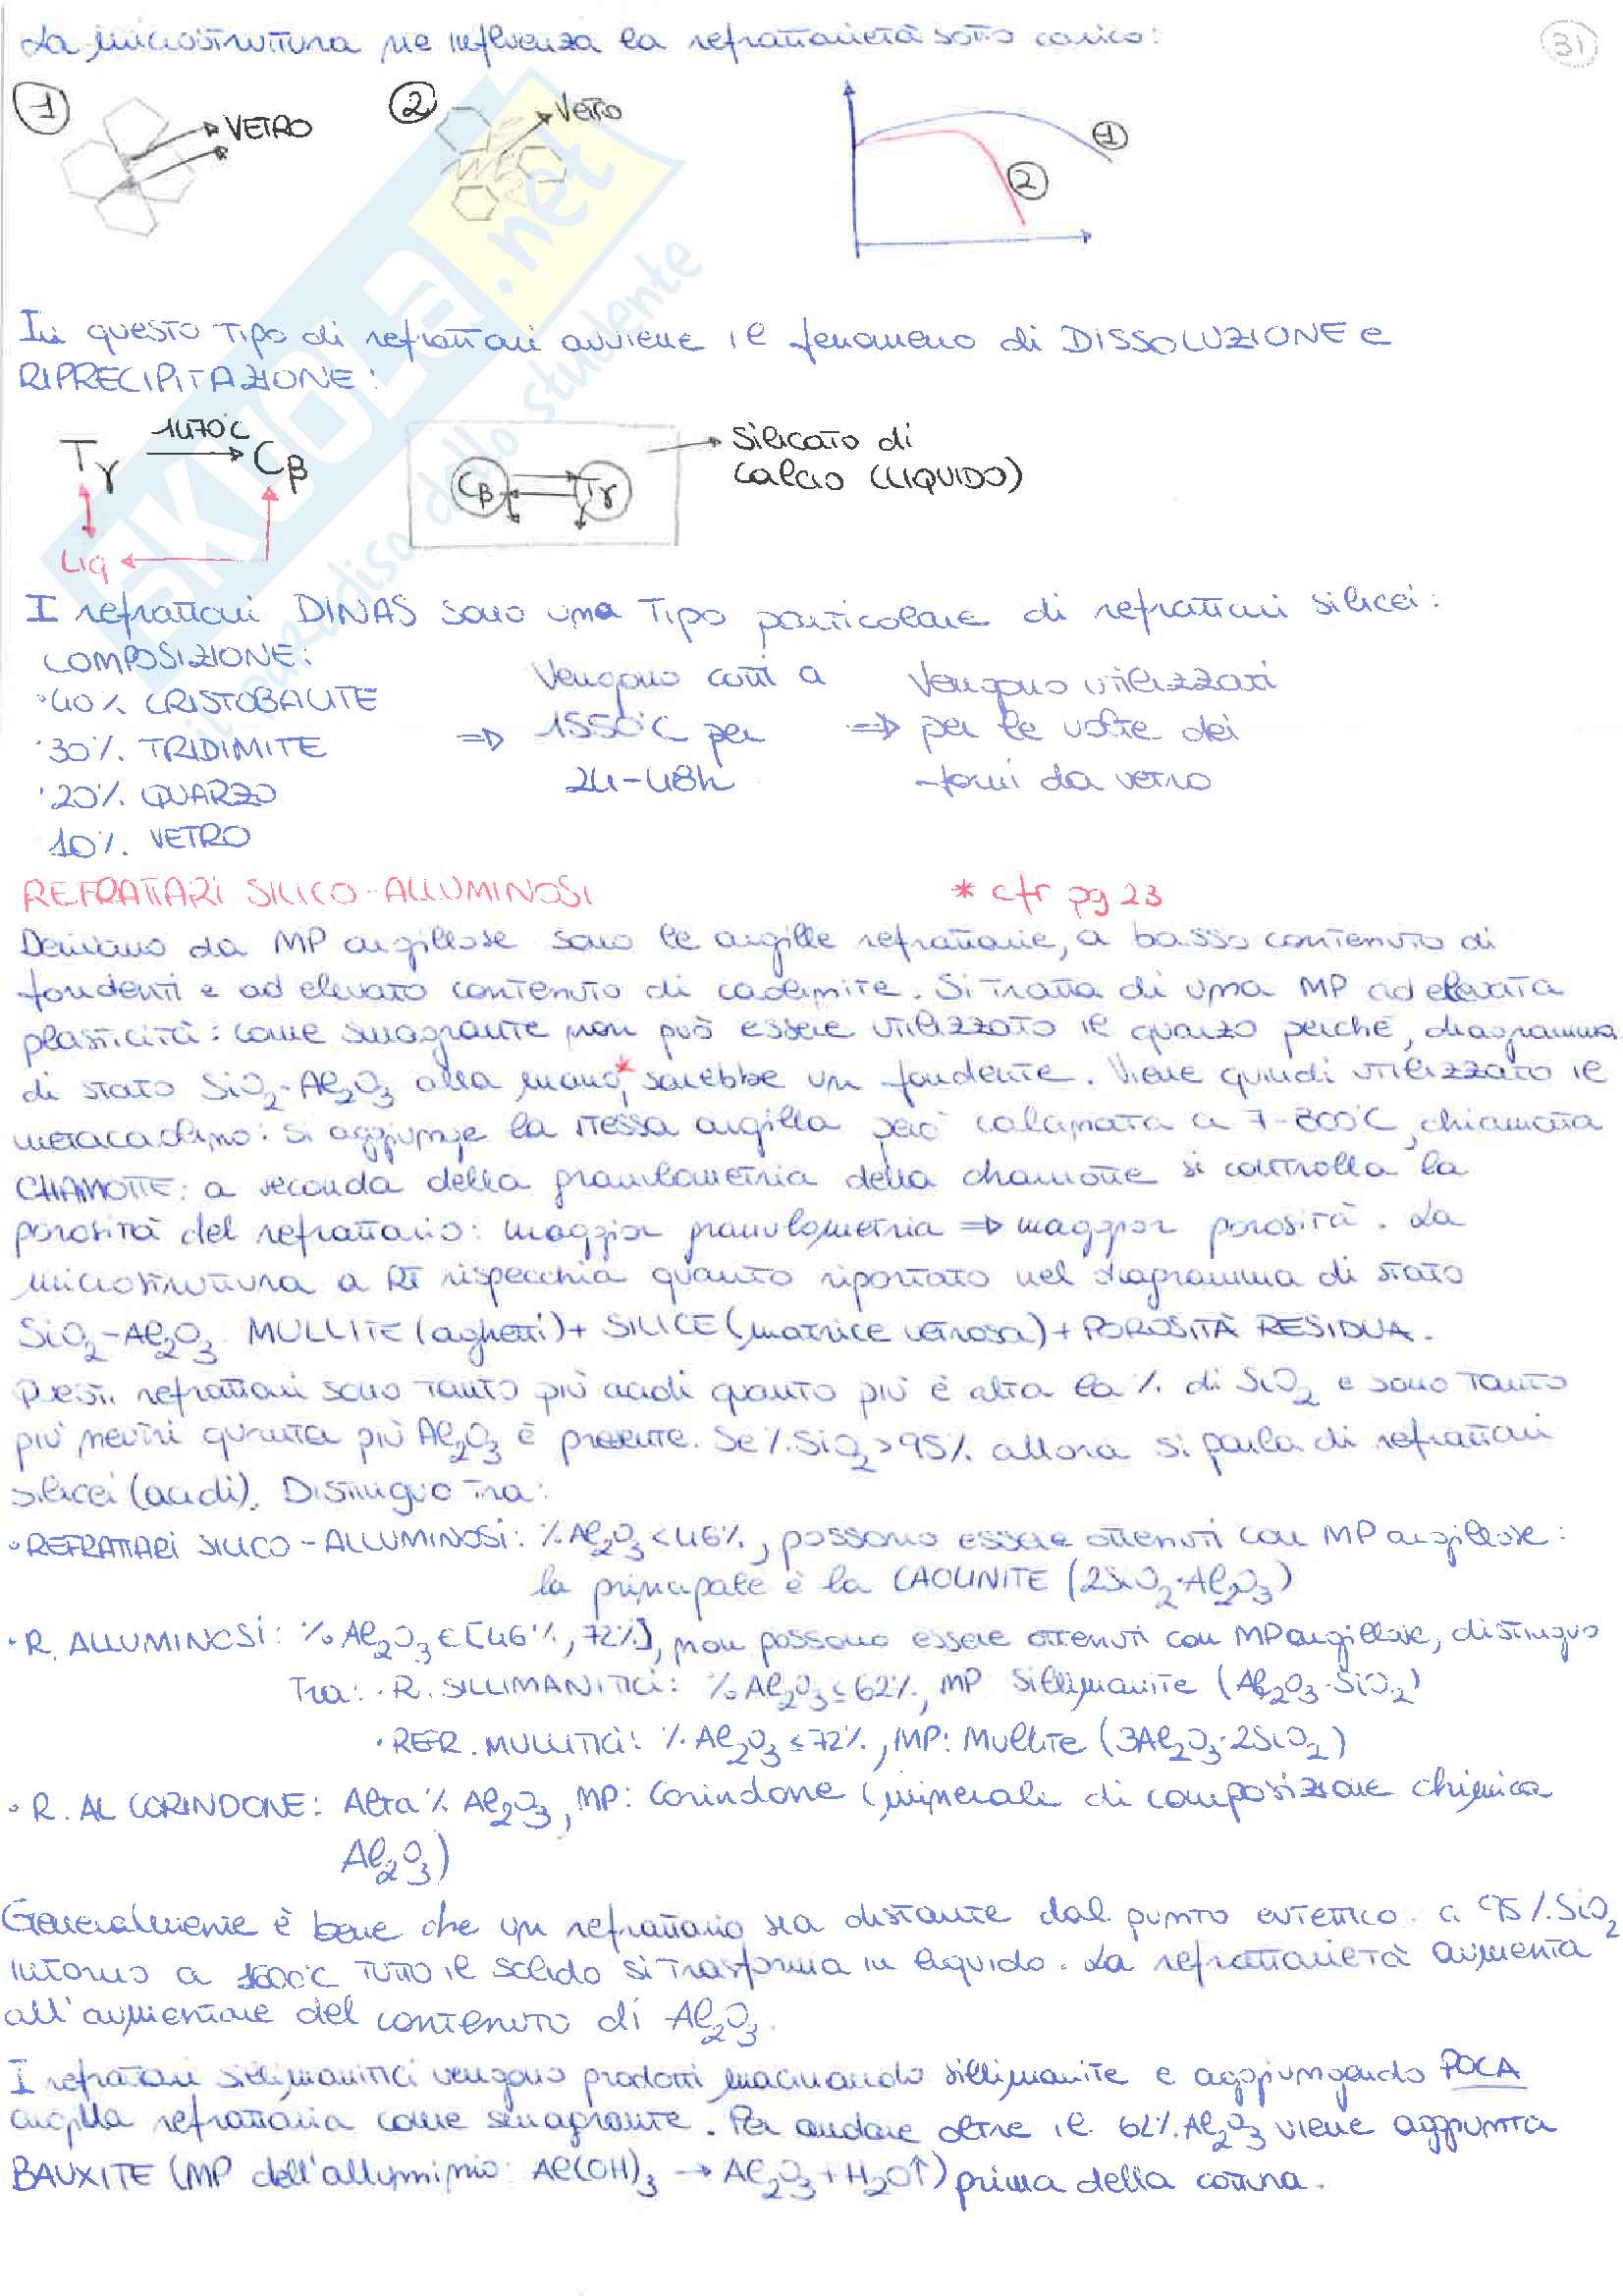 La microstruttura ne influenza la refrattarietà sotto carico:
31
1 VETRO
2 Vetro
1
2
In questo tipo di refrattari avviene il fenomeno di DISSOLUZIONE e
RIPRECIPITAZIONE:
Tγ 1470°C Cβ
Liq
Cβ Tγ
Silicato di
Calcio (LIQUIDO)
I refrattari DINAS sono una tipo particolare di refrattari silicei:
COMPOSIZIONE:
·40% CRISTOBALITE
·30% TRIDIMITE
·20% QUARZO
10% VETRO
=> Vengono cotti a
1550°C per
24-48h
=> Vengono utilizzati
per le volte dei
forni da vetro
REFRATTARI SILICO-ALLUMINOSI * cfr pg 23
Derivano da MP argillose sono le argille refrattarie, a basso contenuto di
fondenti e ad elevato contenuto di caolinite. Si tratta di una MP ad elevata
plasticità: come smagrante non può essere utilizzato il quarzo perché, diagramma
di stato SiO2-Al2O3 alla mano*, sarebbe un fondente. Viene quindi utilizzato il
metacaolino: si aggiunge la stessa argilla però calcinata a 7-800°C, chiamata
CHAMOTTE: a seconda della granulometria della chamotte si controlla la
porosità del refrattario: maggior granulometria => maggior porosità. La
microstruttura a RT rispecchia quanto riportato nel diagramma di stato
SiO2-Al2O3 MULLITE (aghetti) + SILICE (matrice vetrosa) + POROSITÀ RESIDUA.
Questi refrattari sono tanto più acidi quanto più è alta la % di SiO2 e sono tanto
più neutri quanta più Al2O3 è presente. Se % SiO2 > 95% allora si parla di refrattari
silicei (acidi). Distinguo tra:
· REFRATTARI SILICO-ALLUMINOSI: % Al2O3 < 46%, possono essere ottenuti con MP argillose:
la principale è la CAOLINITE (2SiO2·Al2O3)
· R. ALLUMINOSI: % Al2O3 ∈ [46%, 72%], non possono essere ottenuti con MP argillose, distinguo
Tra: · R. SILLIMANITICI: % Al2O3 ≤ 62%, MP Sillimanite (Al2O3·SiO2)
· REFR. MULLITICI: % Al2O3 ≤ 72%, MP: Mullite (3Al2O3·2SiO2)
· R. AL CORINDONE: Alta % Al2O3, MP: Corindone (minerale di composizione chimica
Al2O3)
Generalmente è bene che un refrattario sia distante dal punto eutettico. a 95% SiO2
intorno a 1600°C tutto il solido si trasforma in liquido. La refrattarietà aumenta
all'aumentare del contenuto di Al2O3.
I refrattari sillimanitici vengono prodotti macinando sillimanite e aggiungendo POCA
argilla refrattaria come smagrante. Per andare oltre il 62% Al2O3 viene aggiunta
BAUXITE (MP dell'alluminio: Al(OH)3 → Al2O3 + H2O↑) prima della cottura.
SKUOLA.net
il paradiso dello studente